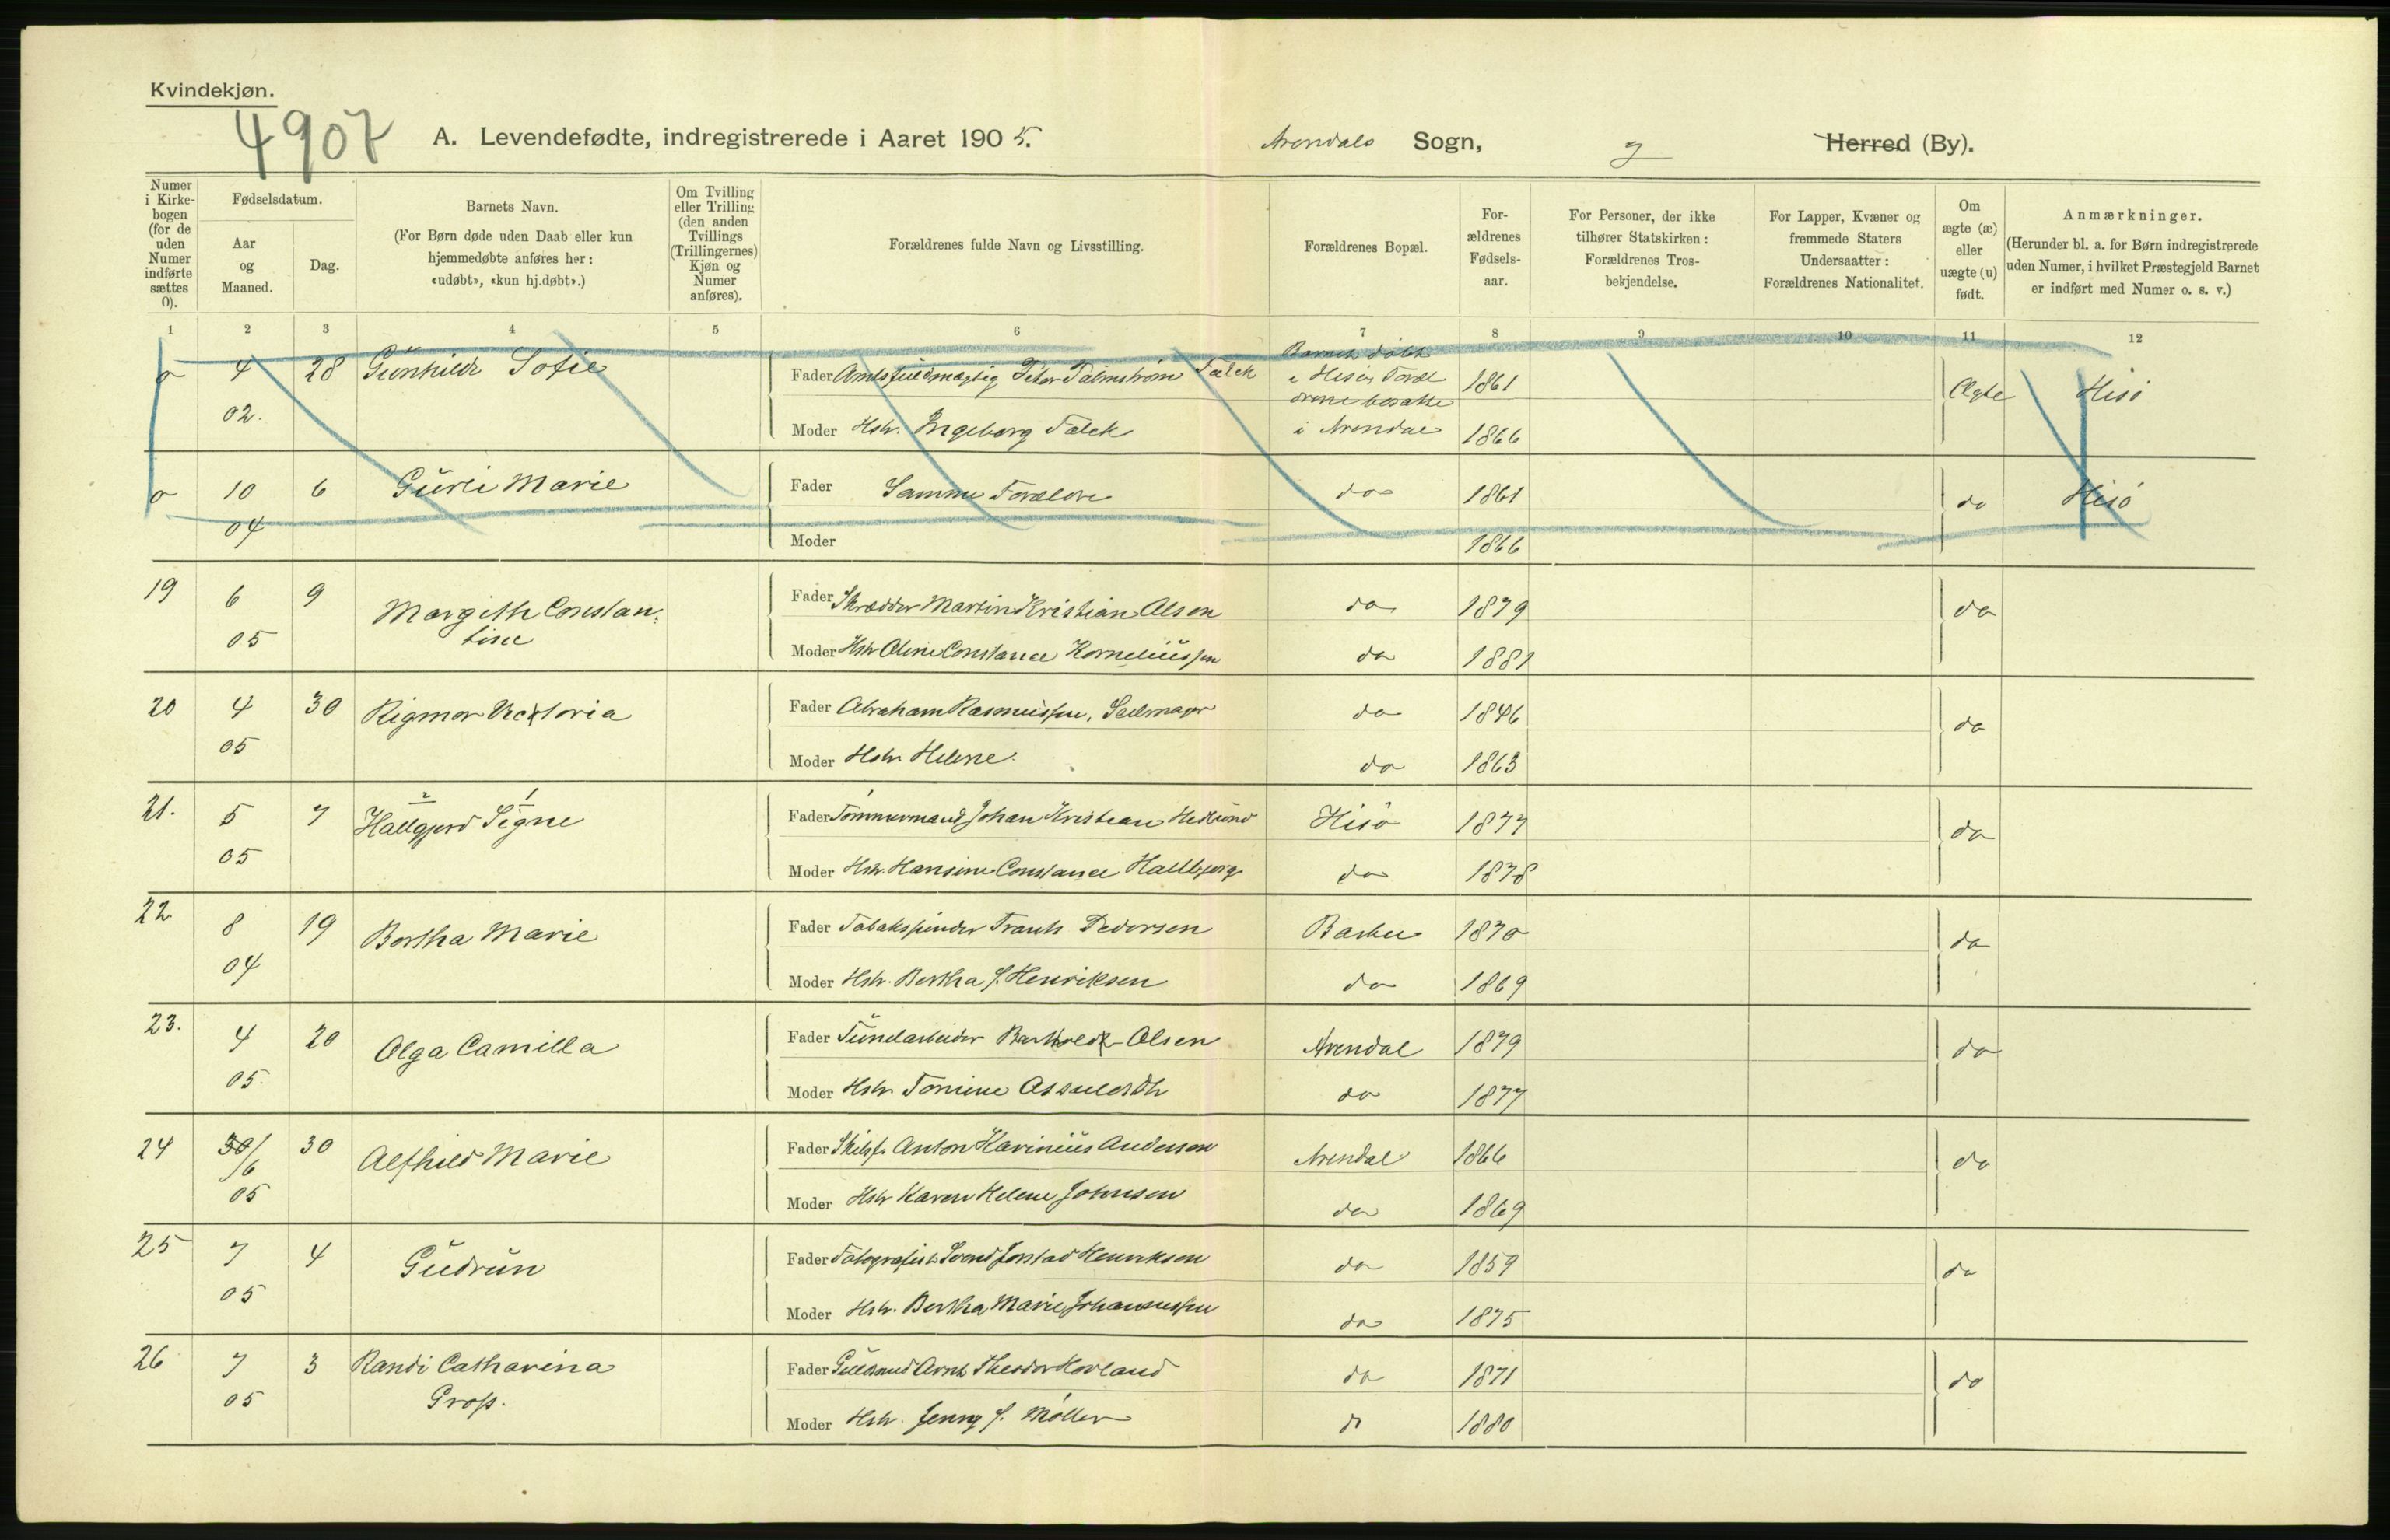 Kvindekjøn.
4907
A. Levendefødte, indregistrerede i Aaret 1905. Arendals Sogn, Herred (By).
Numer i Kirke-bogen (for de uden Numer indførte sættes 0).
Fødselsdatum.
Aar og Maaned.
Dag.
Barnets Navn.
(For Børn døde uden Daab eller kun hjemmedøbte anføres her: «udøbt», «kun hj.døbt».)
Om Tvilling eller Trilling (den anden Tvillings (Trillingernes) Kjøn og Numer anføres).
Forældrenes fulde Navn og Livsstilling.
Forældrenes Bopæl.
For-ældrenes Fødsels-aar.
For Personer, der ikke tilhører Statskirken: Forældrenes Tros-bekjendelse.
For Lapper, Kvæner og fremmede Staters Undersaatter: Forældrenes Nationalitet.
Om ægte (æ) eller uægte (u) født.
Anmærkninger.
(Herunder bl. a. for Børn indregistrerede uden Numer, i hvilket Præstegjeld Barnet er indført med Numer o. s. v.)
1 2 3 4 5 6 7 8 9 10 11 12
0 4 28 Gunhild Sofie Fader Amtsfuldmægtig Peter Palmstrøm Falck Barnet døbt i Hisø, Foræl 1861 Ægte Hisö
02. Moder Hstr. Ingeborg Falck drene bosatte i Arendal 1866
0 10 6 Guri Marie Fader Samme Forældre do 1861 do Hisö
04 Moder 1866
19 6 9 Margith Constan- Fader Skrædder Martin Kristian Olsen do 1879 do
05 tine Moder Hstr Oline Constance Korneliussen do 1881
20 4 30 Rigmor Victoria Fader Abraham Rasmussen, Seilmager do 1846 do
05 Moder Hstr. Helene. do 1863
21. 5 7 Hallgjerd Signe Fader Tömmermand Johan Kristian Hedlund Hisö 1877 do
2 1
05 Moder Hstr. Hansine Constance Hallbjorg do 1878
22 8 19 Bertha Marie Fader Tobakspinder Frants Pedersen Barbu 1870 do
04 Moder Hstr. Bertha f. Henriksen do 1869
23. 4 20 Olga Camilla Fader Tündearbeider Olsen Arendal 1879 do
05. Moder Hstr. Tomine do 1877
24 30/6 30 Alfhild Marie Fader Skibsf. Anton Karinius Andersen Arendal 1866 do
05 Moder Hstr Karen Helene Johnsen do 1869
25 7 4 Gudrun Fader Svend Jorstad Henriksen do 1859 do
05 Moder Hstr. Bertha Marie Johannessen do 1875
26 7 3 Randi Catharina Fader Guldsmed Arnt Theodor Hovland do 1871 do
05 Gross. Moder Hstr. Jenny f. Möller do 1880